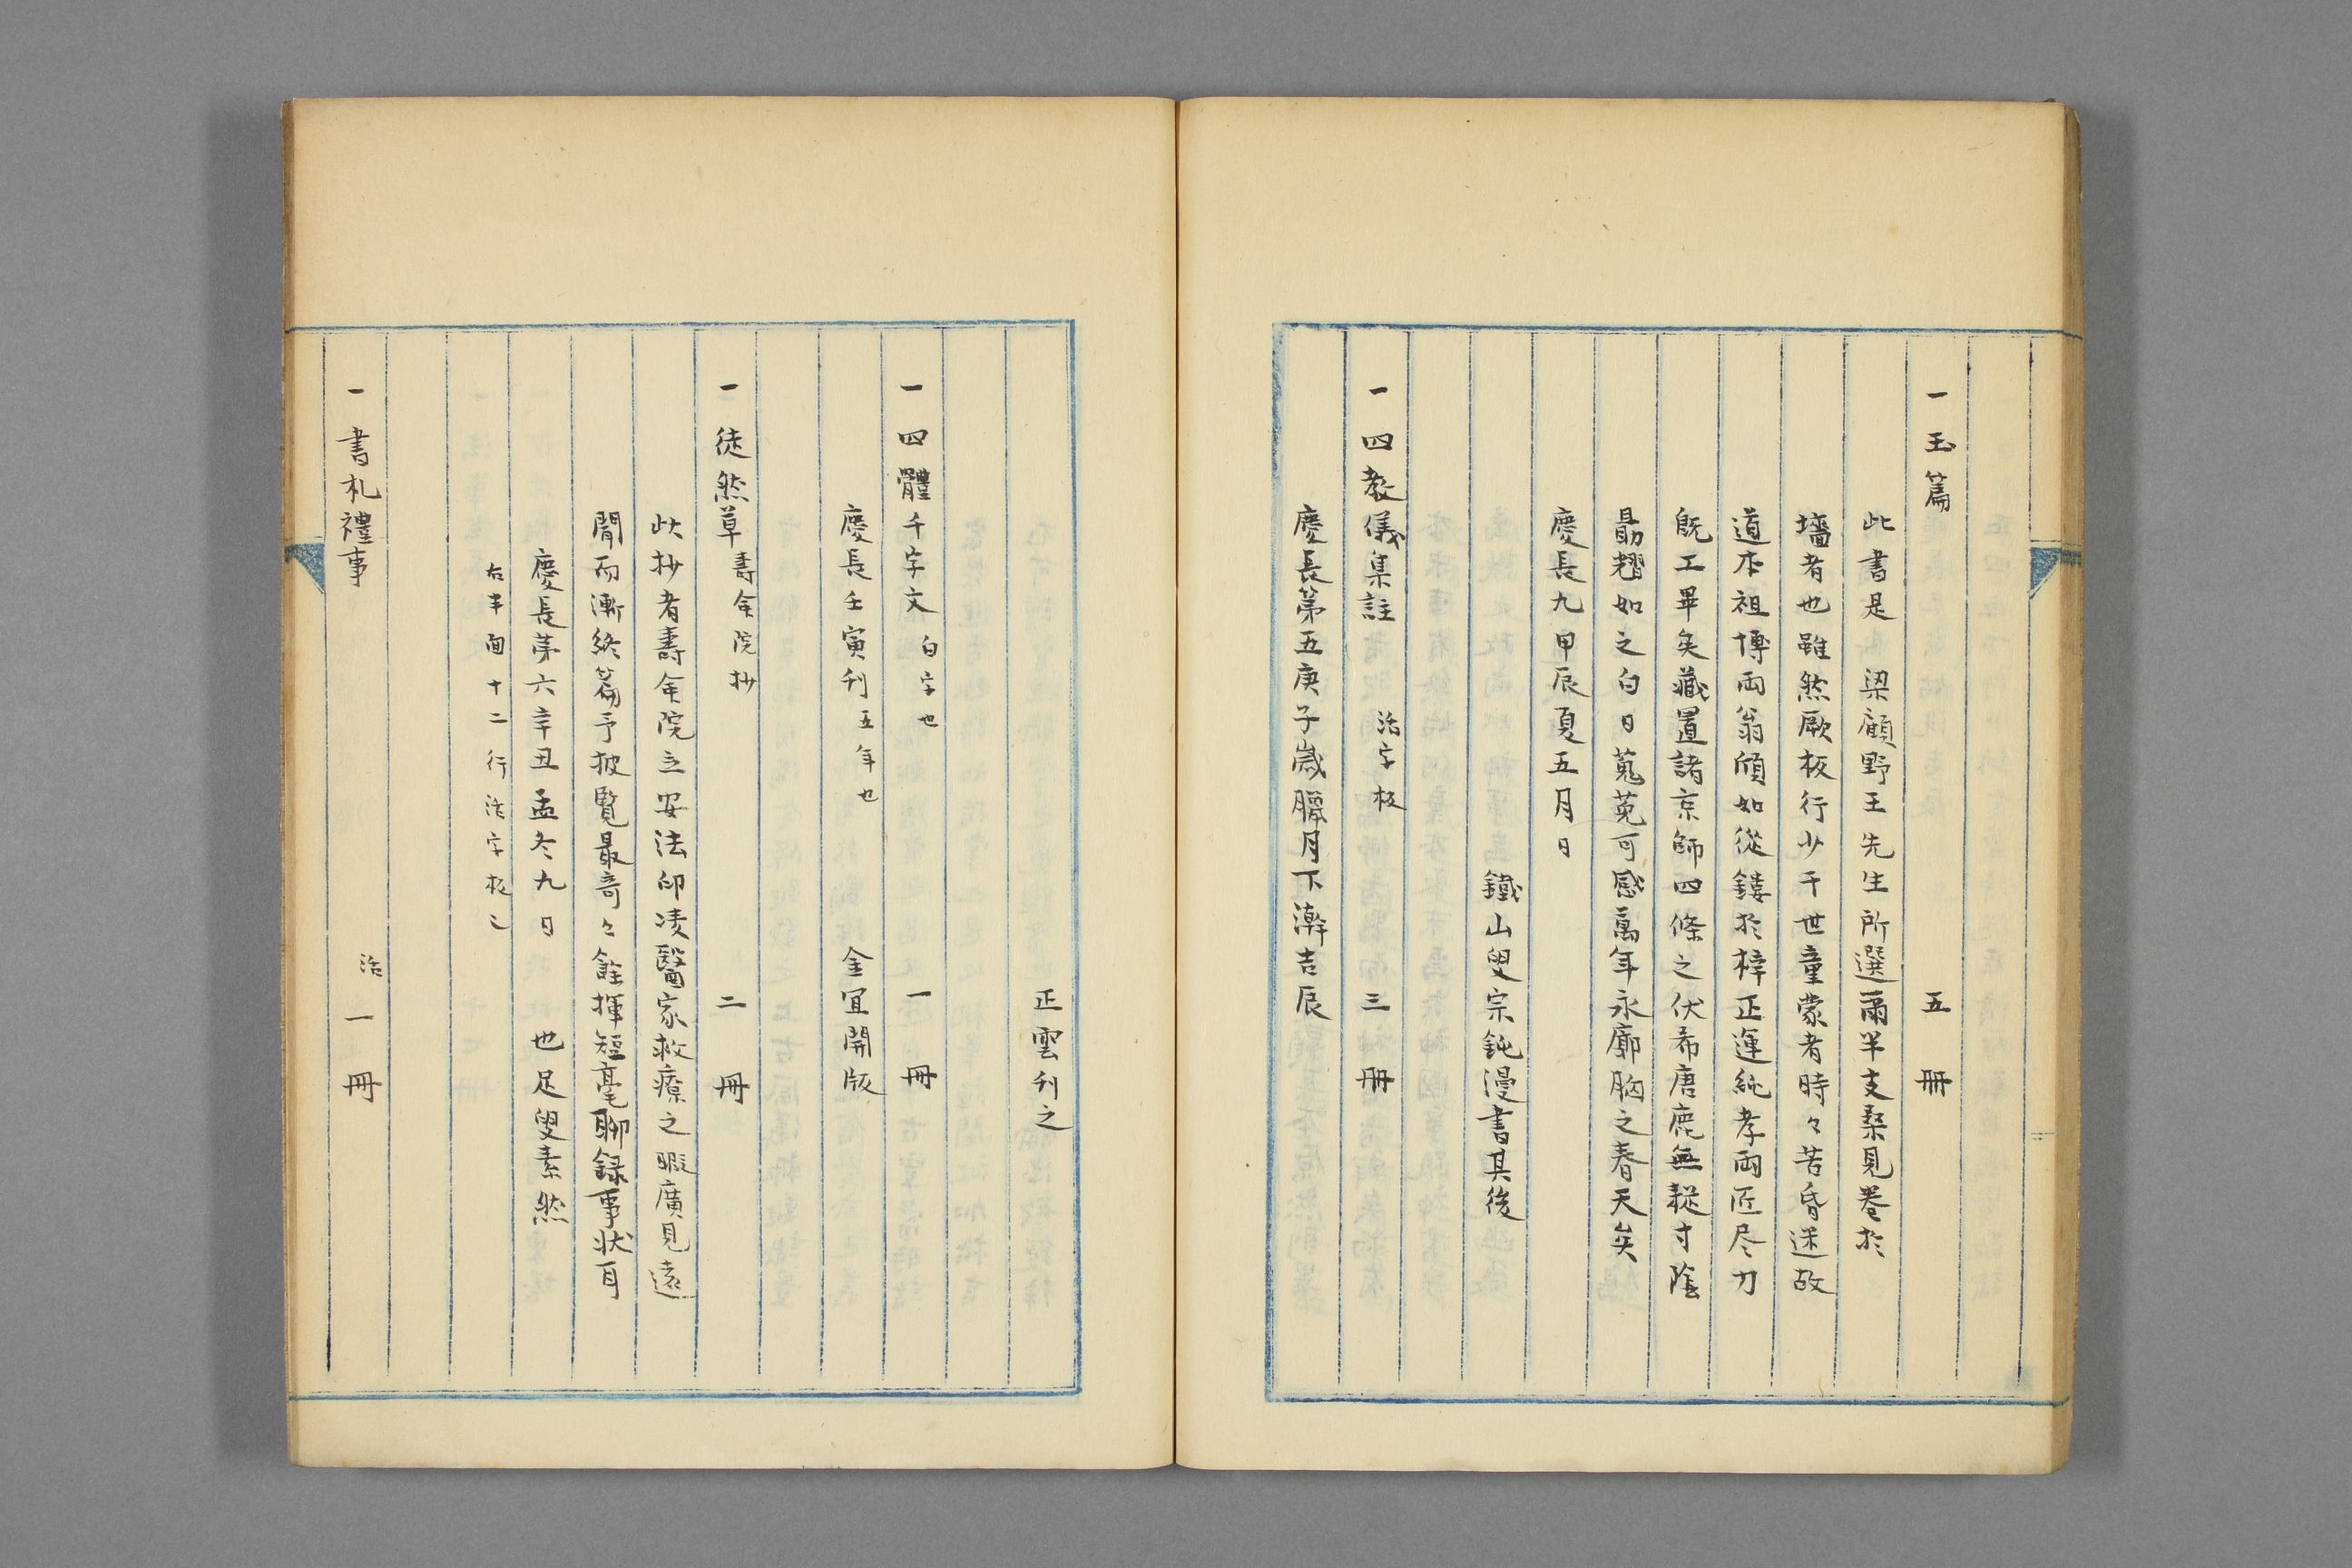 一 玉篇 五冊
此書是 梁顧野王先生所選爾半支桑見巻於
墻者也雖然厥板行少干世童蒙者時々苦昏迷故
道本祖博両翁頎如從鏤於梓正運純孝両匠尽力
既工畢矣藏置諸京師四條之伏希唐鹿無縦寸陰
勗如之白日蒐莬可感萬年永廓胸之春天矣
慶長九甲辰夏五月日
鐵山叟宗鈍漫書其後
一 四教儀集註 活字板 三冊
慶長第五庚子歳臘月下澣吉辰
正雲刊之
一 四體千字文 白字也 一冊
慶長壬寅刊 五年也 金宜開版
一 徒然草 壽命院抄 二冊
此抄者壽命院立安法印凌醫家救療之暇廣見遠
聞而漸終篇予披覧最奇々餘揮短毫聊録事状耳
慶長第六辛丑孟冬九日 也足叟素然
右半面十二行活字板也
一 書札禮事 活 一冊